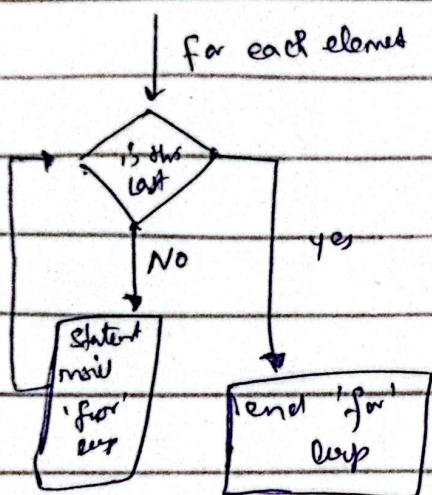 for each element
is this
last
No
yes
Statent
insid
'for'
loop
end 'for'
loop